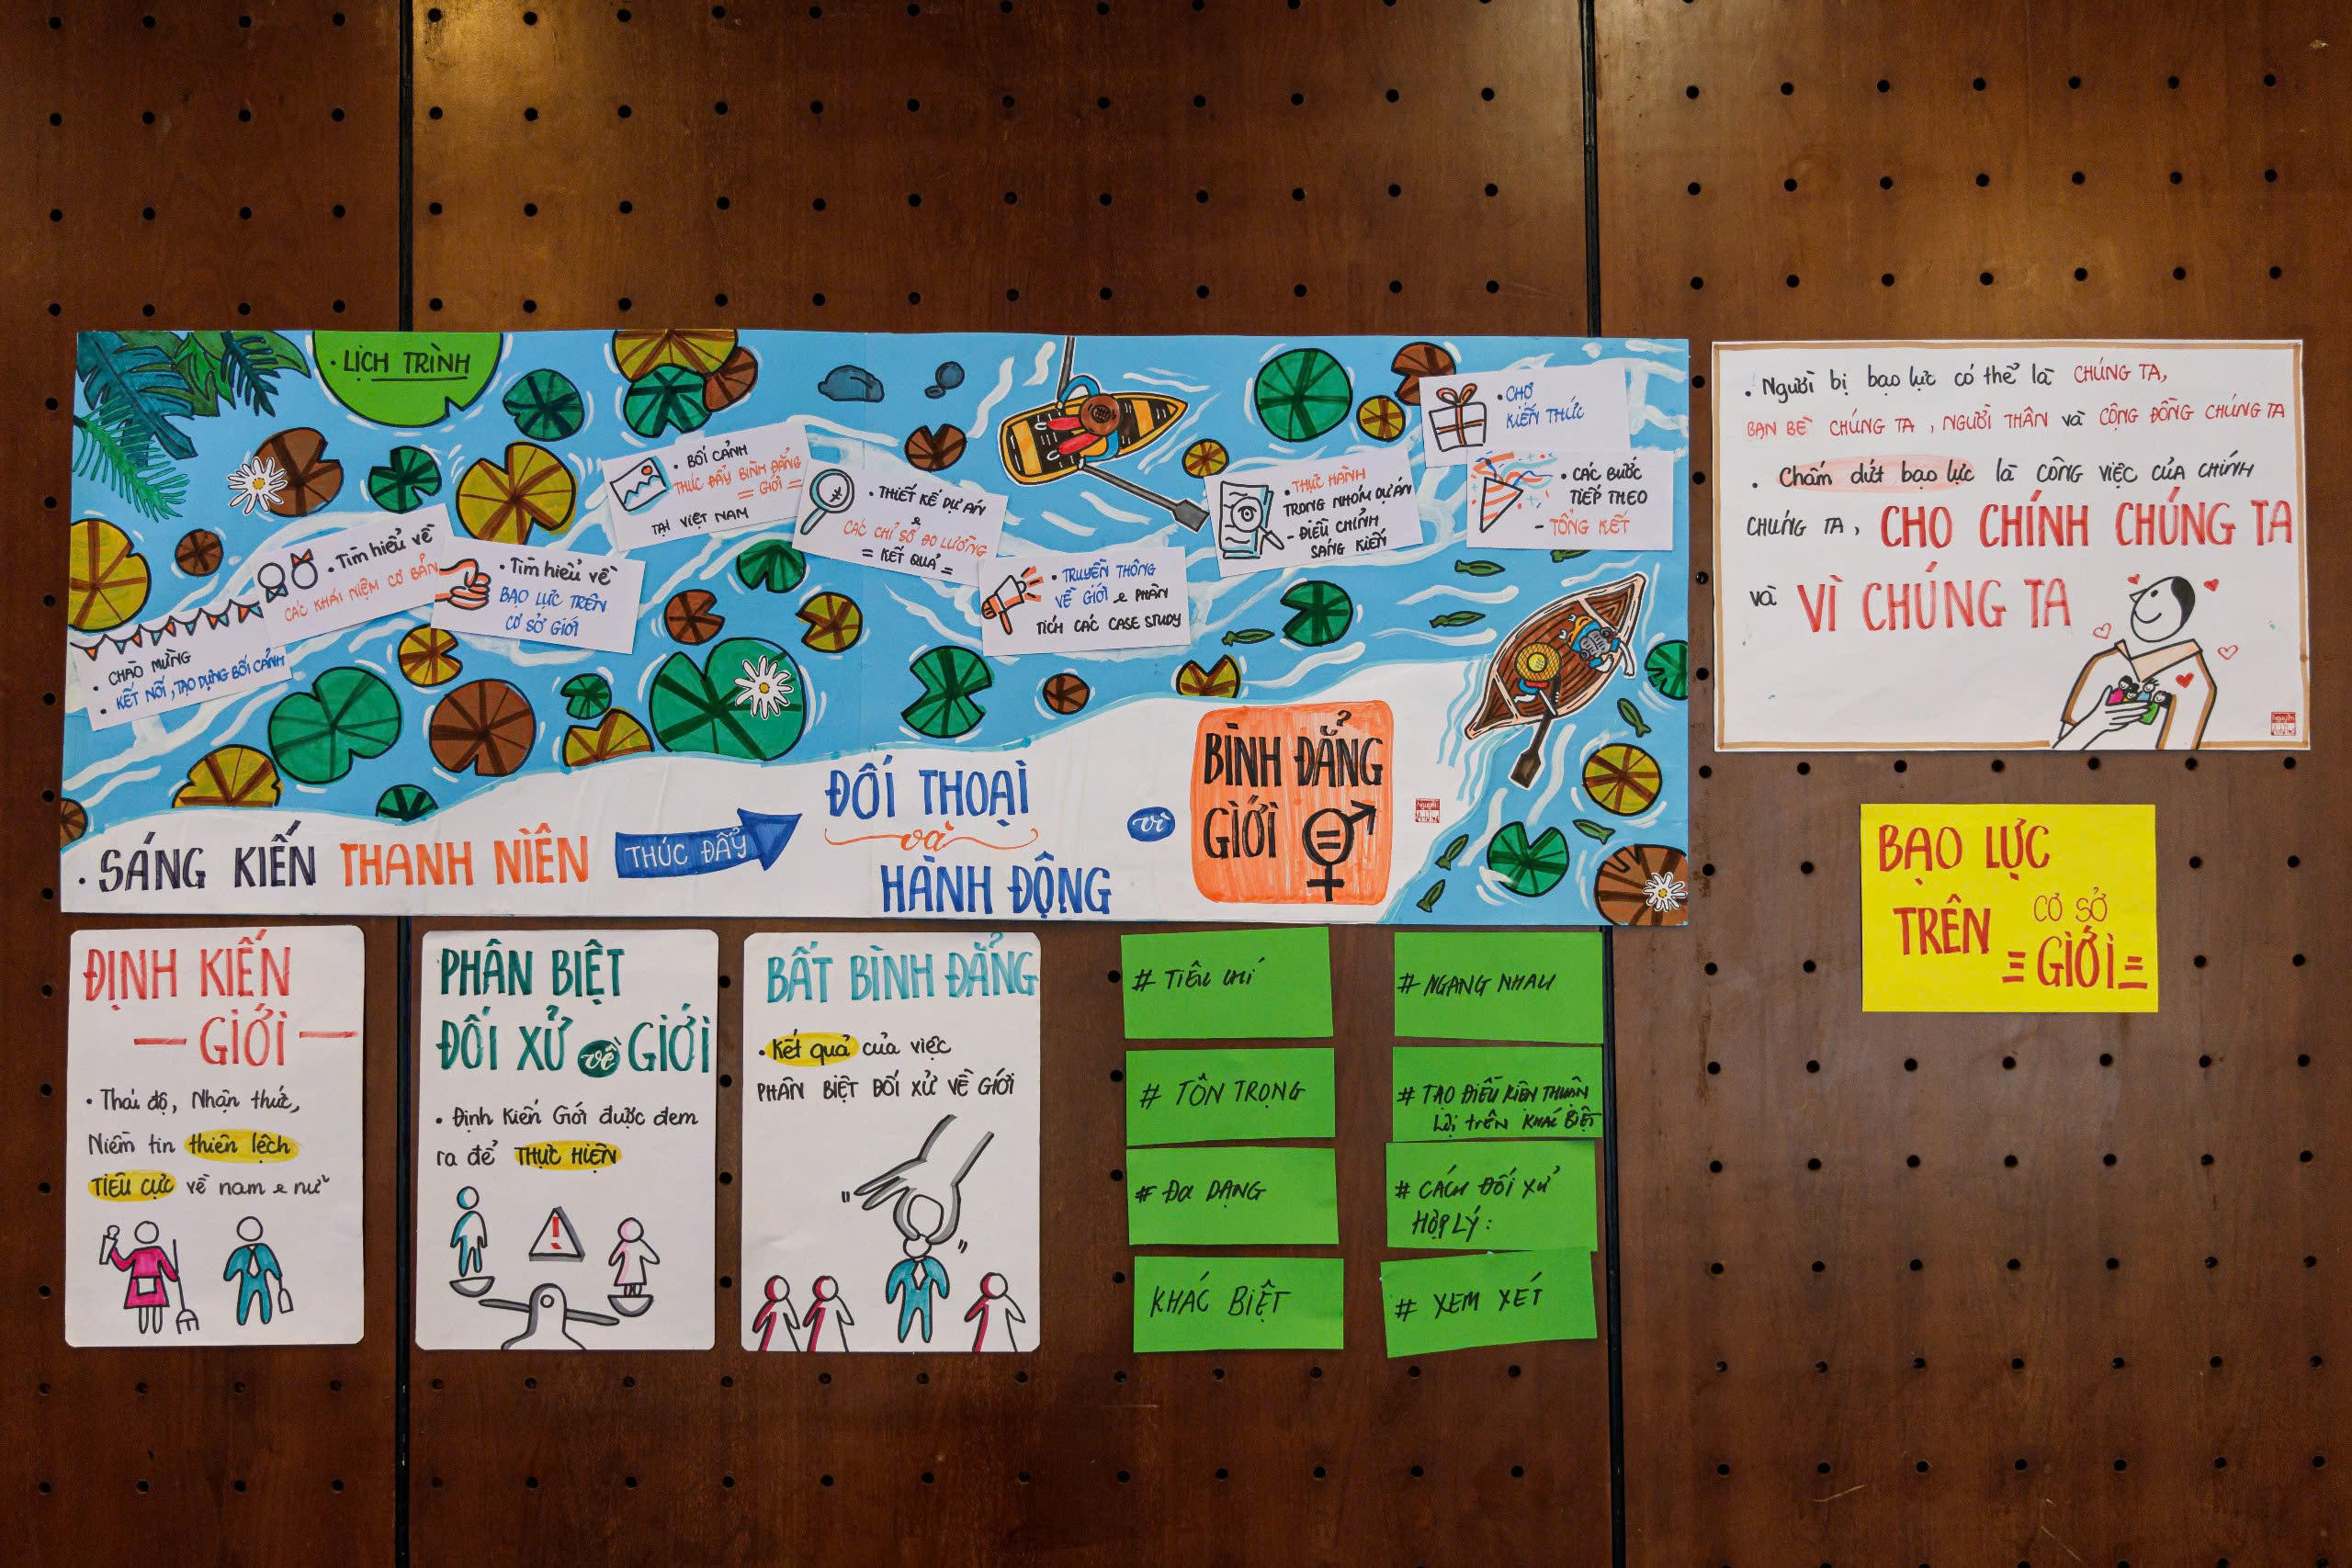 • LỊCH TRÌNH
• CHÀO MỪNG
• KẾT NỐI, TẠO DỰNG BỐI CẢNH
• Tìm hiểu về
CÁC KHÁI NIỆM CƠ BẢN
• Tìm hiểu về
BẠO LỰC TRÊN
CƠ SỞ GIỚI
• BỐI CẢNH
THÚC ĐẨY BÌNH ĐẲNG
= GIỚI =
TẠI VIỆT NAM
• THIẾT KẾ DỰ ÁN
&
CÁC CHỈ SỐ ĐO LƯỜNG
= KẾT QUẢ =
• TRUYỀN THÔNG
VỀ GIỚI & PHÂN
TÍCH CÁC CASE STUDY
• THỰC HÀNH
TRONG NHÓM DỰ ÁN
- ĐIỀU CHỈNH
SÁNG KIẾN
• CHỢ
KIẾN THỨC
• CÁC BƯỚC
TIẾP THEO
- TỔNG KẾT
• SÁNG KIẾN THANH NIÊN
THÚC ĐẨY
ĐỐI THOẠI
và
HÀNH ĐỘNG
vì
BÌNH ĐẲNG
GIỚI
• Người bị bạo lực có thể là CHÚNG TA,
BẠN BÈ CHÚNG TA, NGƯỜI THÂN và CỘNG ĐỒNG CHÚNG TA
• Chấm dứt bạo lực là CÔNG VIỆC CỦA CHÍNH
CHÚNG TA, CHO CHÍNH CHÚNG TA
và VÌ CHÚNG TA
BẠO LỰC
TRÊN CƠ SỞ
= GIỚI =
ĐỊNH KIẾN
— GIỚI —
• Thái độ, Nhận thức,
Niềm tin thiên lệch
TIÊU CỰC về nam & nữ
PHÂN BIỆT
ĐỐI XỬ về GIỚI
• Định Kiến Giới được đem
ra để THỰC HIỆN
BẤT BÌNH ĐẲNG
• Kết quả của việc
PHÂN BIỆT ĐỐI XỬ VỀ GIỚI
# TIÊU CHÍ
# TÔN TRỌNG
# ĐA DẠNG
KHÁC BIỆT
# NGANG NHAU
# TẠO ĐIỀU KIỆN THUẬN
LỢI TRÊN KHÁC BIỆT
# CÁCH ĐỐI XỬ
HỢP LÝ:
# XEM XÉT